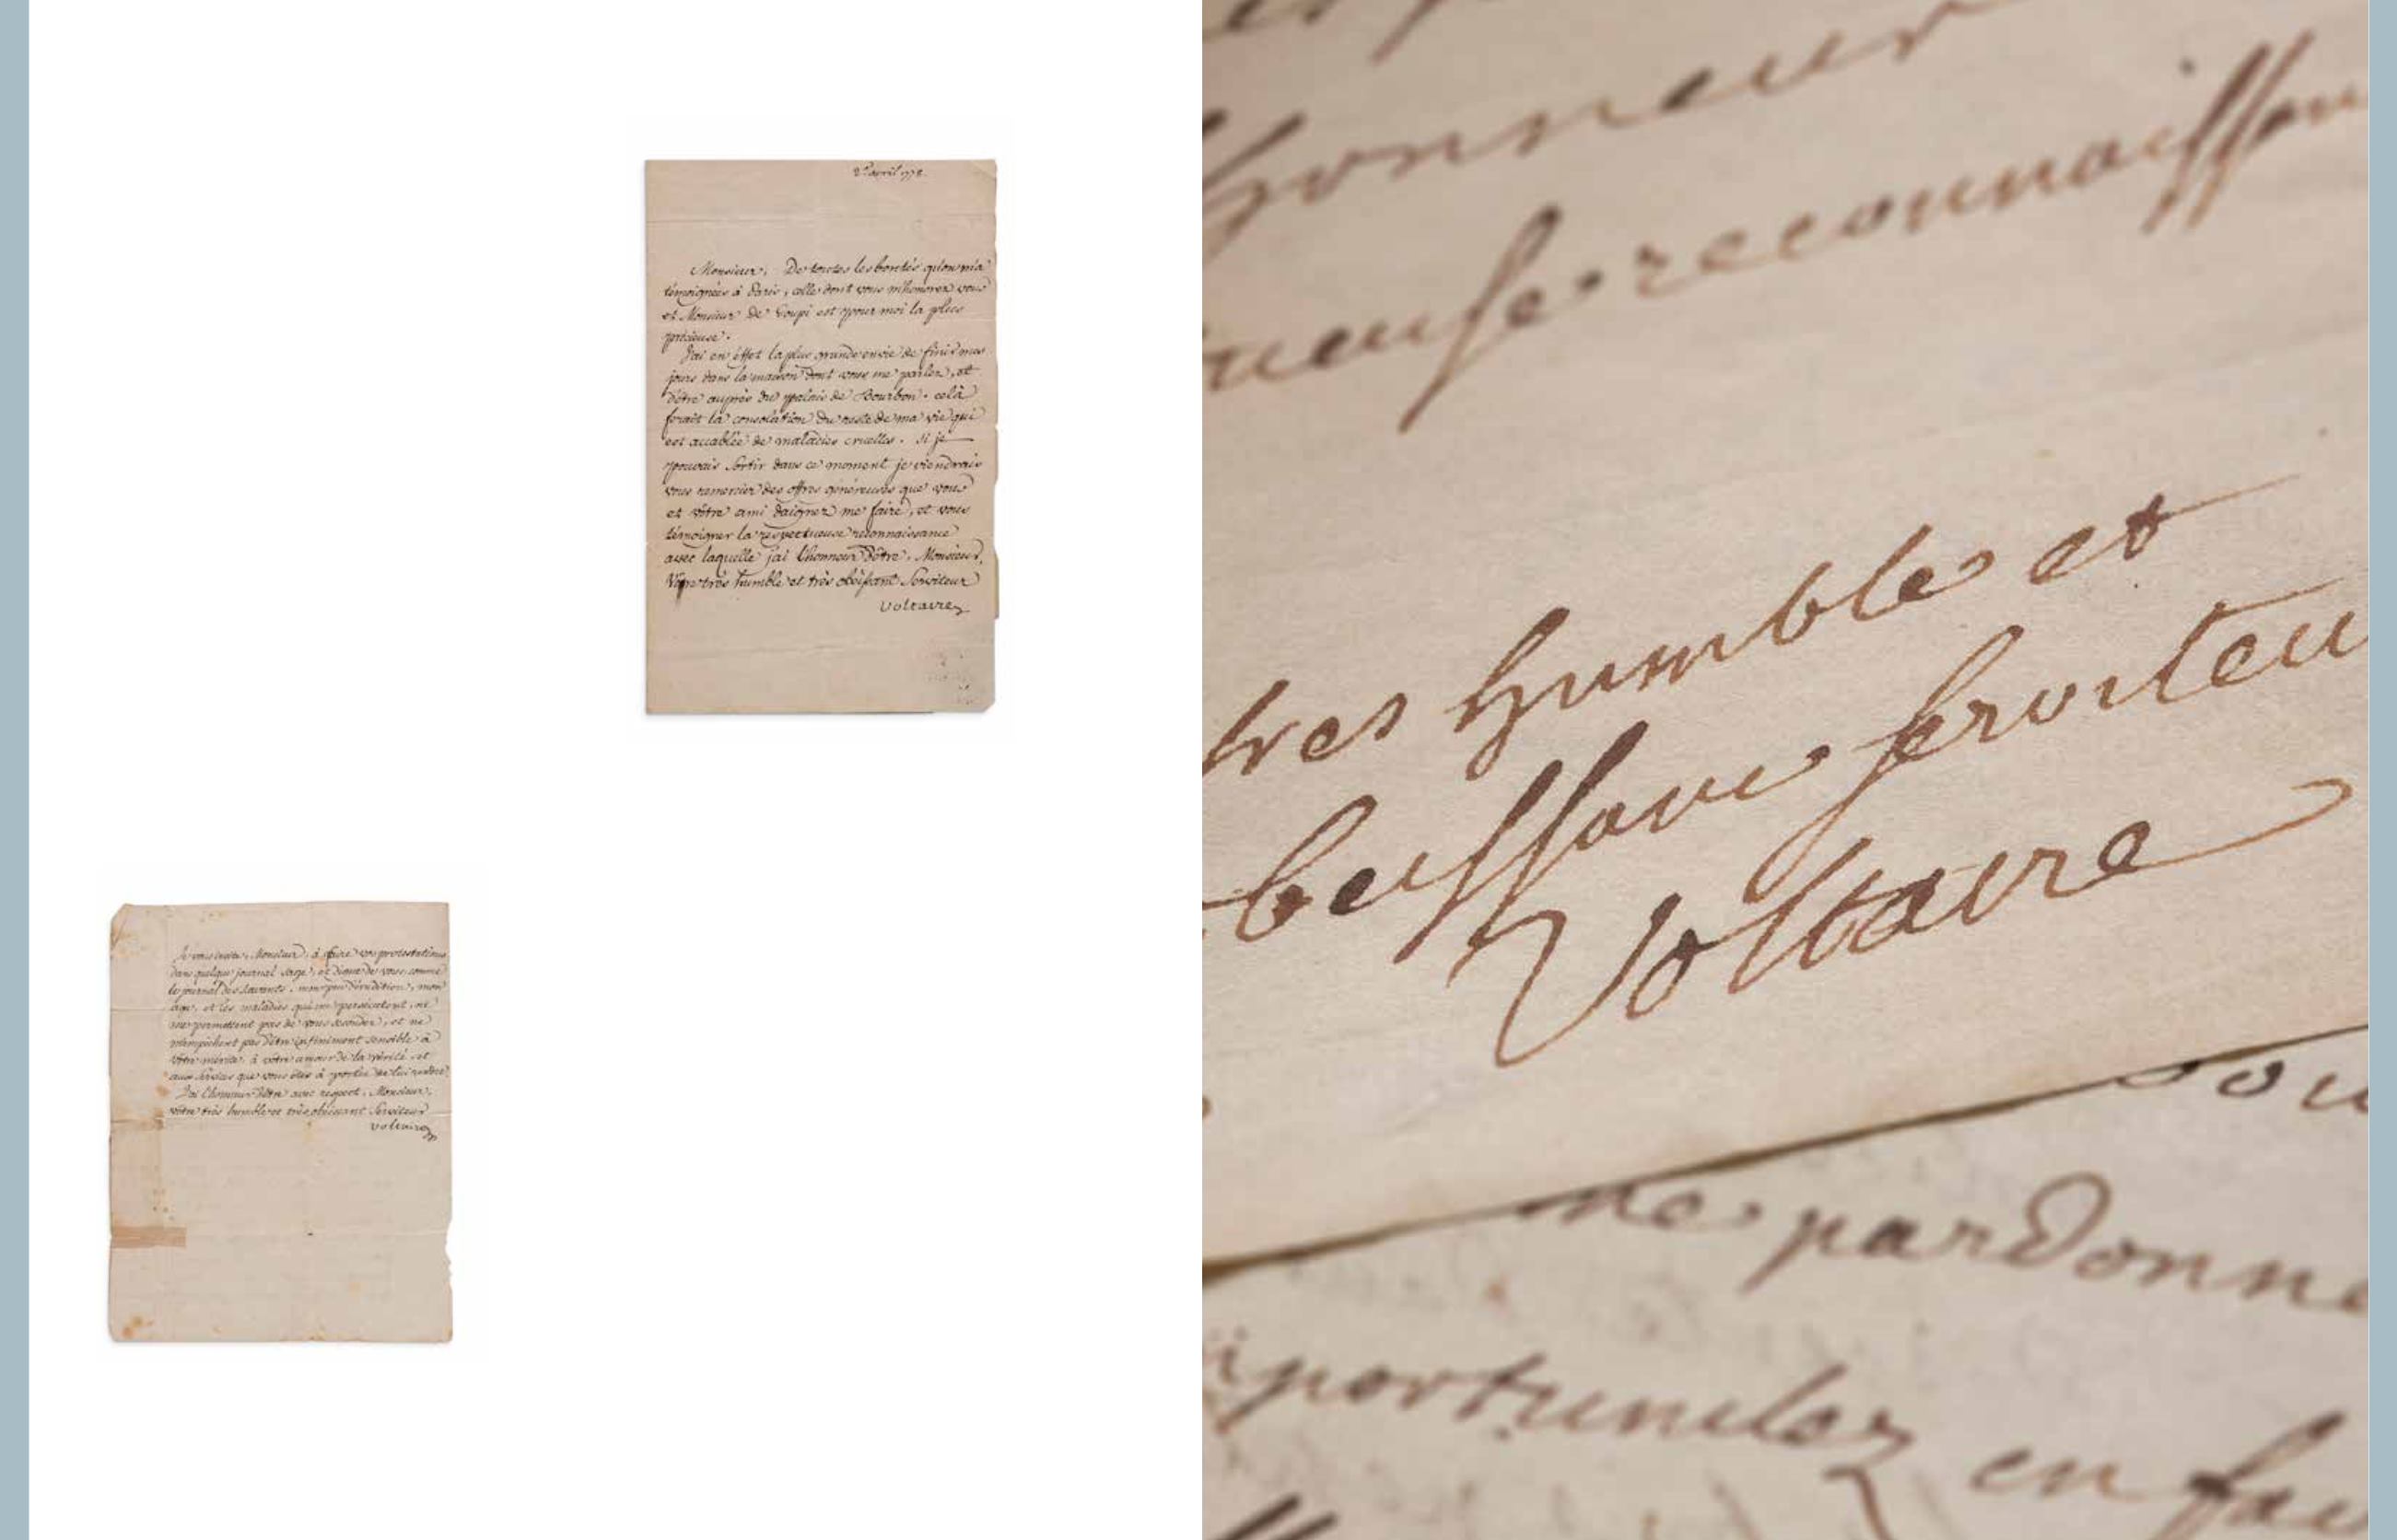 avril 1778.
Monsieur, De toutes les bontés qu'on m'a
témoignées à Paris, celle dont vous m'honorez vous
et Monsieur de est pour moi la plus
précieuse.
J'ai en effet la plus grande envie de finir mes
jours dans la maison dont vous me parlez, et
d'être auprès du palais de Bourbon. celà
ferait la consolation du reste de ma vie qui
est accablée de maladies cruelles. si je
pouvais sortir dans ce moment je viendrais
vous remercier des offres généreuses que vous
et vôtre ami daignez me faire, et vous
témoigner la respectueuse reconnaissance
avec laquelle j'ai l'honneur d'être, Monsieur,
Vôtre très humble et très obéissant serviteur
Voltaire
Je vous invite, Monsieur, à faire vos protestations
dans quelque journal sage, et digne de vous comme
le journal des savants. mon peu d'érudition, mon
âge, et les maladies qui me persécutent, ne
me permettent pas de vous seconder, et ne
m'empêchent pas d'être infiniment sensible à
vôtre mérite, à vôtre amour de la vérité, et
aux services que vous êtes à portée de lui rendre.
J'ai l'honneur d'être avec respect, Monsieur,
vôtre très humble et très obéissant serviteur
Voltaire
honneur
tueuse reconnaissan
tres humble et
beissant serviteu
Voltaire
ou
me pardonne
mportunitez en fav